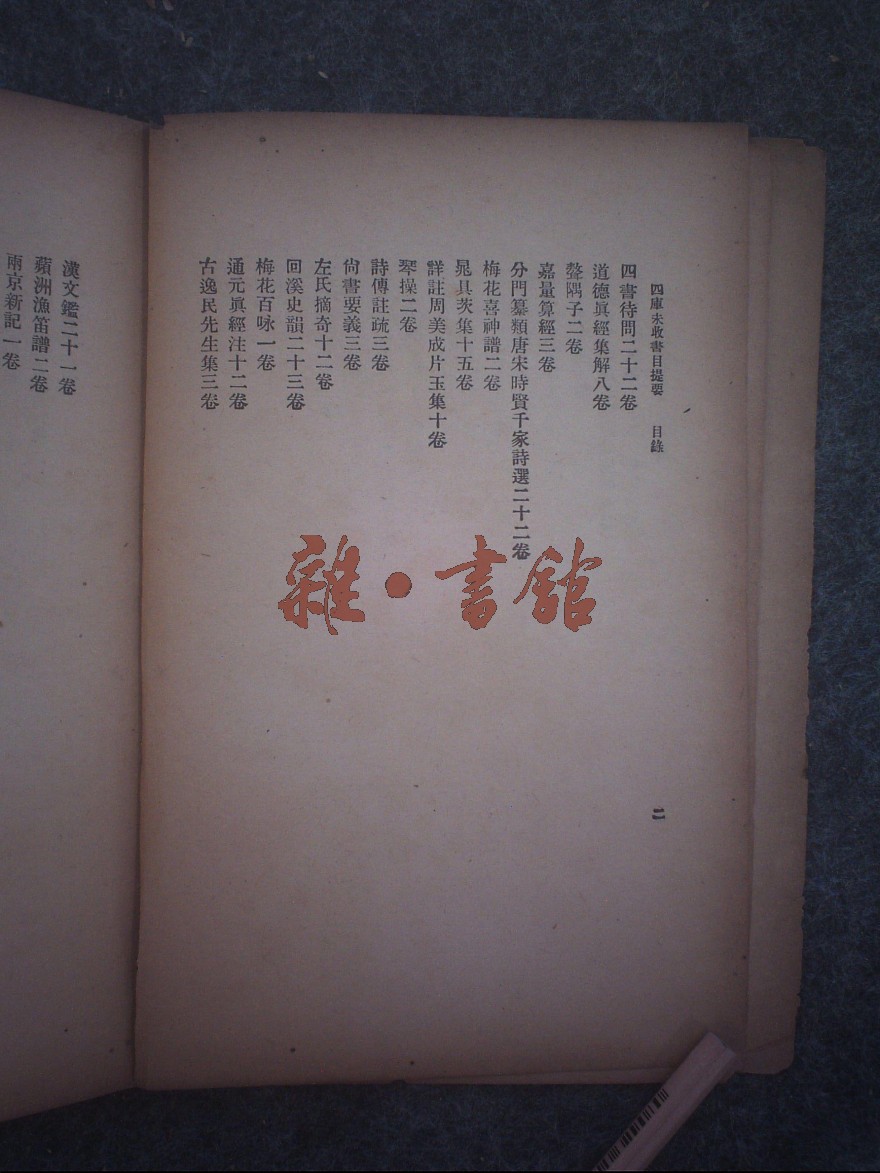 四庫未收書目提要 目錄
二
四書待問二十二卷
道德眞經集解八卷
謷隅子二卷
嘉量算經三卷
分門纂類唐宋時賢千家詩選二十二卷
梅花喜神譜二卷
晁具茨集十五卷
詳註周美成片玉集十卷
琴操二卷
詩傳註疏三卷
尙書要義三卷
左氏摘奇十二卷
回溪史韻二十三卷
梅花百咏一卷
通元眞經注十二卷
古逸民先生集三卷
漢文鑑二十一卷
蘋洲漁笛譜二卷
兩京新記一卷
雜·書館